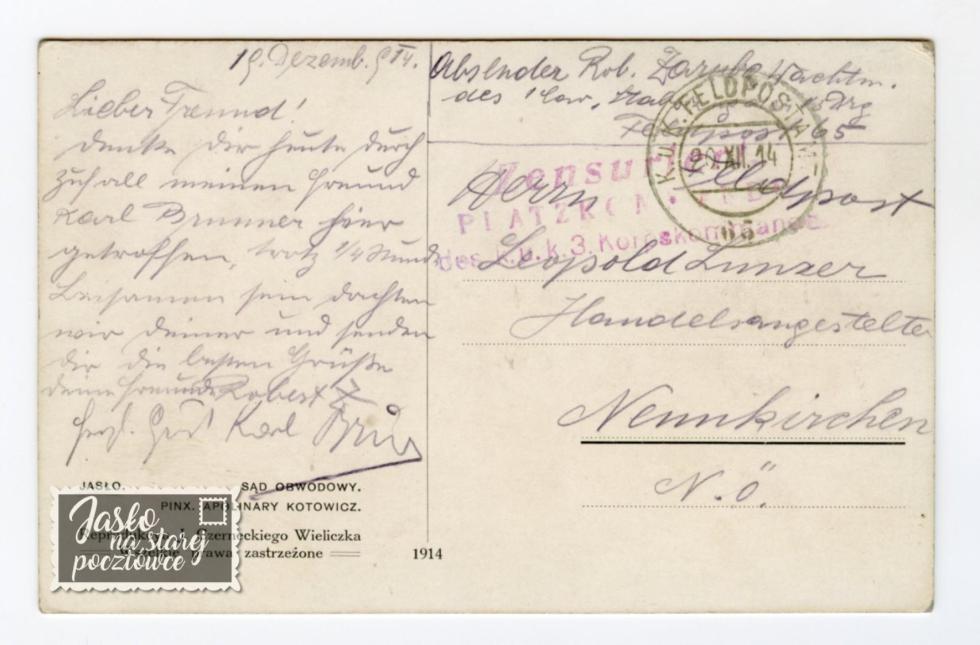 19. Dezemb. 914.
Lieber Freund!
denke dir heute durch
zufall meinen Freund
Karl Brunner hier
getroffen, trotz 1/4 Stunde
Beisamen sein dachten
wir deiner und senden
dir die besten Grüße
deine Freunde Robert Z
herzl. Gruß Karl
Absender Rob. Zaruba Wachtm.
des
Feldpost 65
K.u.K. FELDPOSTAMT
20.XII.14
65
Zensuriert
PLATZKOMMANDO
des k.u.k. 3. Korpskommandos
Herrn Feldpost
Leopold Lunzer
Handelsangestellter
Neunkirchen
N. Ö.
JASŁO. SĄD OBWODOWY.
PINX. APOLINARY KOTOWICZ.
Czerneckiego Wieliczka
prawa zastrzeżone
1914
Jasło
na starej
pocztówce